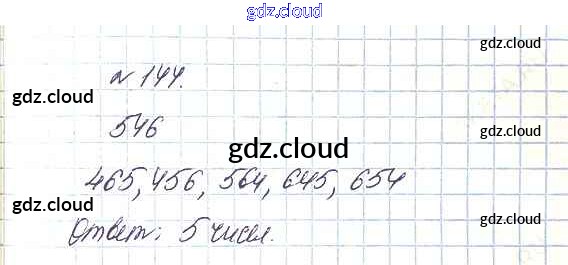 gdz.cloud
gdz.cloud
№ 144.
gdz.cloud
546
gdz.cloud
gdz.cloud
465, 456, 564, 645, 654
gdz.cloud
gdz.cloud
Ответ: 5 чисел.